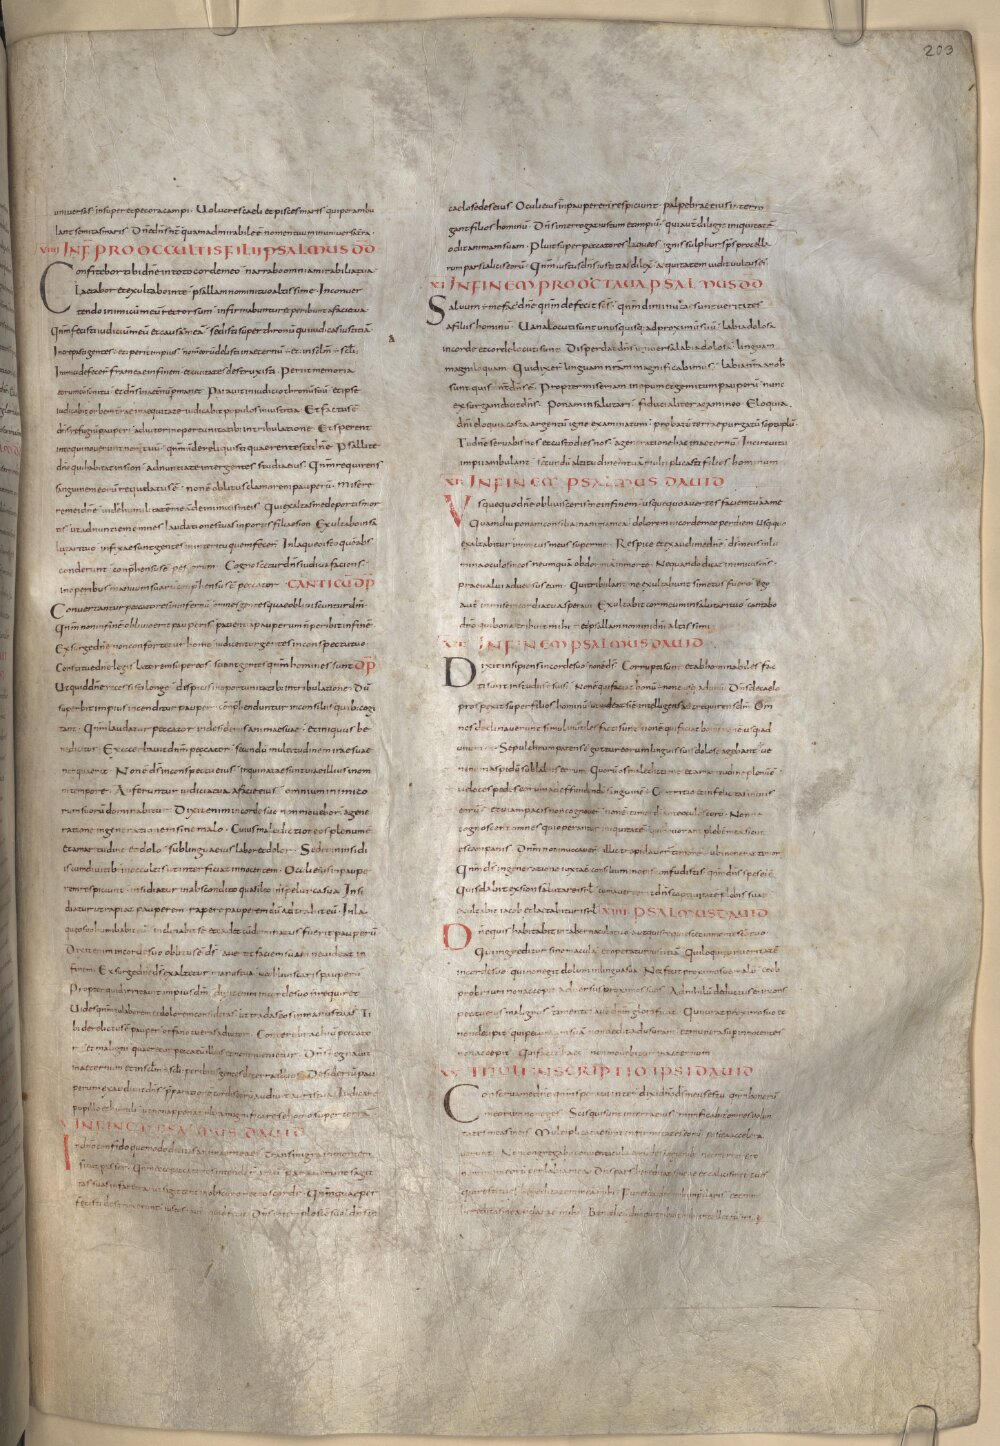 203
uniuersas insuper et pecora campi · Uolucres caeli et pisces maris qui perambu
lant semitas maris · Dn̄e dn̄s n̄r quam admirabile ē nomen tuum in uniuersa terra ·
VIIII IN FIN̄ PRO OCCULTIS FILII PSALMUS DD
Confitebor tibi dn̄e in toto corde meo narrabo omnia mirabilia tua
Laetabor et exultabo in te psallam nomini tuo altissime · In conuer
tendo inimicum meum retrorsum infirmabuntur et peribunt a facie tua
Qnm̄ fecisti iudicium meū et causā meā sedisti super thronū qui iudicas iustitiā
Increpasti gentes et periit impius nomen eorū delesti in aeternū et in sclm̄ scli
Inimici defecerunt frameae in finem et ciuitates destruxisti · Periit memoria
eorum cum sonitu et dn̄s in aeternū permanet · Parauit in iudicio thronū suū et ipse
iudicabit orbem terrae in aequitate iudicabit populos in iustitia · Et factus ē
dn̄s refugiū pauperi adiutor in oportunitatibus in tribulatione · Et sperent
in te qui nouerunt nomen tuū qnm̄ n̄ dereliquisti quaerentes te dn̄e · Psallite
dn̄o qui habitat in sion adnuntiate inter gentes studia eius · Qnm̄ requirens
sanguinem eorū recordatus ē non ē oblitus clamorem pauperū · Misere
re mei dn̄e uide humilitatem meā de inimicis meis · Qui exaltas me de portis mor
tis ut adnuntiem omnes laudationes tuas in portis filiae sion · Exultabo in sa
lutari tuo infixae sunt gentes in interitu quem fecer̄ · In laqueo isto quē abs
conderunt conprehensus ē pes eorum · Cognoscetur dn̄s iudicia faciens
in operibus manuum suarū conprehensus ē peccator · CANTICU DP̄
Conuertantur peccatores in infernū omnes gentes quae obliuiscuntur dm̄ ·
Qnm̄ non in finē obliuio erit pauperis patientia pauperum n̄ peribit in finē ·
Exsurge dn̄e non confortetur homo iudicentur gentes in conspectu tuo
Constitue dn̄e legis latorem super eos sciant gentes qnm̄ homines sunt DP̄
Ut quid dn̄e recessisti longe dispicis in oportunitatibus in tribulatione · Dū
superbit impius incenditur pauper conprehenduntur in consiliis quibus cogi
tant · Qnm̄ laudatur peccator in desideriis animae suae et iniquus be
nedicitur · Exacerbauit dnm̄ peccator secundū multitudinem irae suae
n̄ quaeret · Non ē ds̄ in conspectu eius inquinatae sunt uiae illius in om
ni tempore · Auferuntur iudicia tua a facie eius omnium inimico
rum suorū dominabitur · Dixit enim in corde suo non mouebor a gene
ratione in generationem sine malo · Cuius maledictione os plenum ē
et amaritudine et dolo sub lingua eius labor et dolor · Sedet in insidi
is cum diuitibus in occultis ut interficiat innocentem · Oculi eius in paupe
rem respiciunt insidiatur in abscondito quasi leo in spelunca sua · Insi
diatur ut rapiat pauperem rapere pauperem dū adtrahit eū · In la
queo suo humiliabit eū inclinabit se et cadet cū dominatus fuerit pauperū
Dixit enim in corde suo oblitus ē ds̄ auertit faciem suam ne uideat in
finem · Exsurge dn̄e ds̄ exaltetur manus tua ne obliuiscaris pauperū
Propter quid irritauit impius dm̄ dixit enim in corde suo n̄ requiret
Uides qnm̄ tu laborem et dolorem consideras ut tradas eos in manus tuas · Ti
bi derelictus ē pauper orfano tu eras adiutor · Contere brachiū peccato
ris et maligni quaeretur peccatū illius et non inuenietur · Dn̄s regnauit
in aeternum et in sclm̄ scli peribitis gentes de terra illius · Desideriū pau
perum exaudiuit dn̄s praeparationē cordis eorū audiuit auris tua · Iudicare
pupillo et humili ut non apponat ultra magnificare se homo super terrā
IN FINEM PSALMUS DAUID
In dn̄o confido quomodo dicitis animae meae transmigra in montem
sicut passer · Qnm̄ ecce peccatores intenderunt arcū parauerunt sagit
tas suas in faretra ut sagittent in obscuro rectos corde · Qnm̄ quae per
fecisti destruxerunt iustus autē quid fecit · Dn̄s in templo sc̄o suo dn̄s in
caelo sedes eius · Oculi eius in pauperem respiciunt palpebrae eius interro
gant filios hominū · Dn̄s interrogat iustum et impiū qui autē diligit iniquitatē
odit animam suam · Pluit super peccatores laqueos ignis sulphur et sp̄s procella
rum pars calicis eorū · Qnm̄ iustus dn̄s iustitias dilexit aequitatem uidit uultus eius
XI IN FINEM PRO OCTAUA PSALMUS DD
Saluum me fac dn̄e qnm̄ defecit scs̄ qnm̄ diminutae sunt ueritates
a filiis hominū · Uana locuti sunt unusquisq; ad proximū suū labia dolosa
in corde et corde locuti sunt · Disperdat dn̄s uniuersa labia dolosa linguam
magniloquam · Qui dixer̄ linguam nostrā magnificabimus labia nr̄a a nob̄
sunt quis nr̄ dn̄s ē · Propter miseriam inopum et gemitum pauperū nunc
exsurgam dicit dn̄s · Ponam in salutari fiducialiter agam in eo · Eloquia
dn̄i eloquia casta argentū igne examinatum probatū terrae purgatū septuplū
Tu dn̄e seruabis nos et custodies nos a generatione hac in aeternū · In circuitu
impii ambulant secundū altitudinem tuā multiplicasti filios hominum
XII IN FINEM PSALMUS DAUID
Usquequo dn̄e obliuisceris me in finem usquequo auertes faciem tuā a me
Quamdiu ponam consilia in anima mea dolorem in corde meo per diem · Usq;quo
exaltabitur inimicus meus super me · Respice et exaudi me dn̄e ds̄ meus inlu
mina oculos meos ne umquā obdormiā in morte · Ne quando dicat inimicus m̄s
praeualui aduersus eum · Qui tribulant me exultabunt si motus fuero ego
autē in misericordia tua speraui · Exultabit cor meum in salutari tuo cantabo
dn̄o qui bona tribuit mihi et psallam nomini dn̄i altissimi
IN FINEM PSALMUS DAUID
Dixit insipiens in corde suo non ē ds̄ · Corrupti sunt et abhominabiles fac
ti sunt in studiis suis · Non ē qui faciat bonū non ē usq; ad unū · Dn̄s de caelo
prospexit super filios hominū ut uideat si ē intellegens aut requirens dm̄ · Om
nes declinauerunt simul inutiles facti sunt non ē qui faciat bonum non ē usq; ad
unum · Sepulchrum patens ē guttur eorum linguis suis dolose agebant ue
nenū aspidū sub labiis eorum · Quorū os maledictione et amaritudine plenū ē
ueloces pedes eorum ad effundendū sanguinē · Contritio et infelicitas in uiis
eorū et uiam pacis non cognouer̄ non ē timor di ante oculos eorū · Nonne
cognoscent omnes qui operantur iniquitatē qui deuorant plebē meā sicut
escam panis · Dnm̄ non inuocauer̄ illic trepidauer̄ timore ubi non erat timor
Qnm̄ ds̄ in generatione iusta ē consilium inopis confudistis qnm̄ dn̄s spes eius ē
Quis dabit ex sion salutare isrl̄ cum auerterit dn̄s captiuitatē plebis suae
exultabit iacob et laetabitur isrl̄ XIIII PSALMUS DAUID
Dn̄e quis habitabit in tabernaculo tuo aut quis requiescet in monte sc̄o tuo
Qui ingreditur sine macula et operatur iustitiā · Qui loquitur ueritatē
in corde suo qui non egit dolum in lingua sua · Nec fecit proximo suo malū et ob
probrium non accepit aduersus proximos suos · Ad nihilū deductus ē in cons
pectu eius malignus timentes autē dnm̄ glorificat · Qui iurat proximo suo et
non decipit qui pecuniā suā non dedit ad usuram et munera super innocentes
non accepit · Qui facit haec non mouebitur in aeternum
XV TITULI INSCRIPTIO IPSI DAUID
Conserua me dn̄e qnm̄ speraui in te dixi dn̄o ds̄ meus es tu qnm̄ bonorū
meorum non eges · Sc̄is qui sunt in terra eius mirificauit omnes uolun
tates meas in eis · Multiplicatae sunt infirmitates eorū postea accelera
uerunt · Non congregabo conuenticula eorū de sanguinibus nec memor ero
nominum eorū per labia mea · Dn̄s pars hereditatis meae et calicis mei tu es
qui restitues hereditatem meā mihi · Funes ceciderunt mihi in praeclaris etenim
hereditas mea praeclara ē mihi · Benedicā dnm̄ qui tribuit mihi intellectum